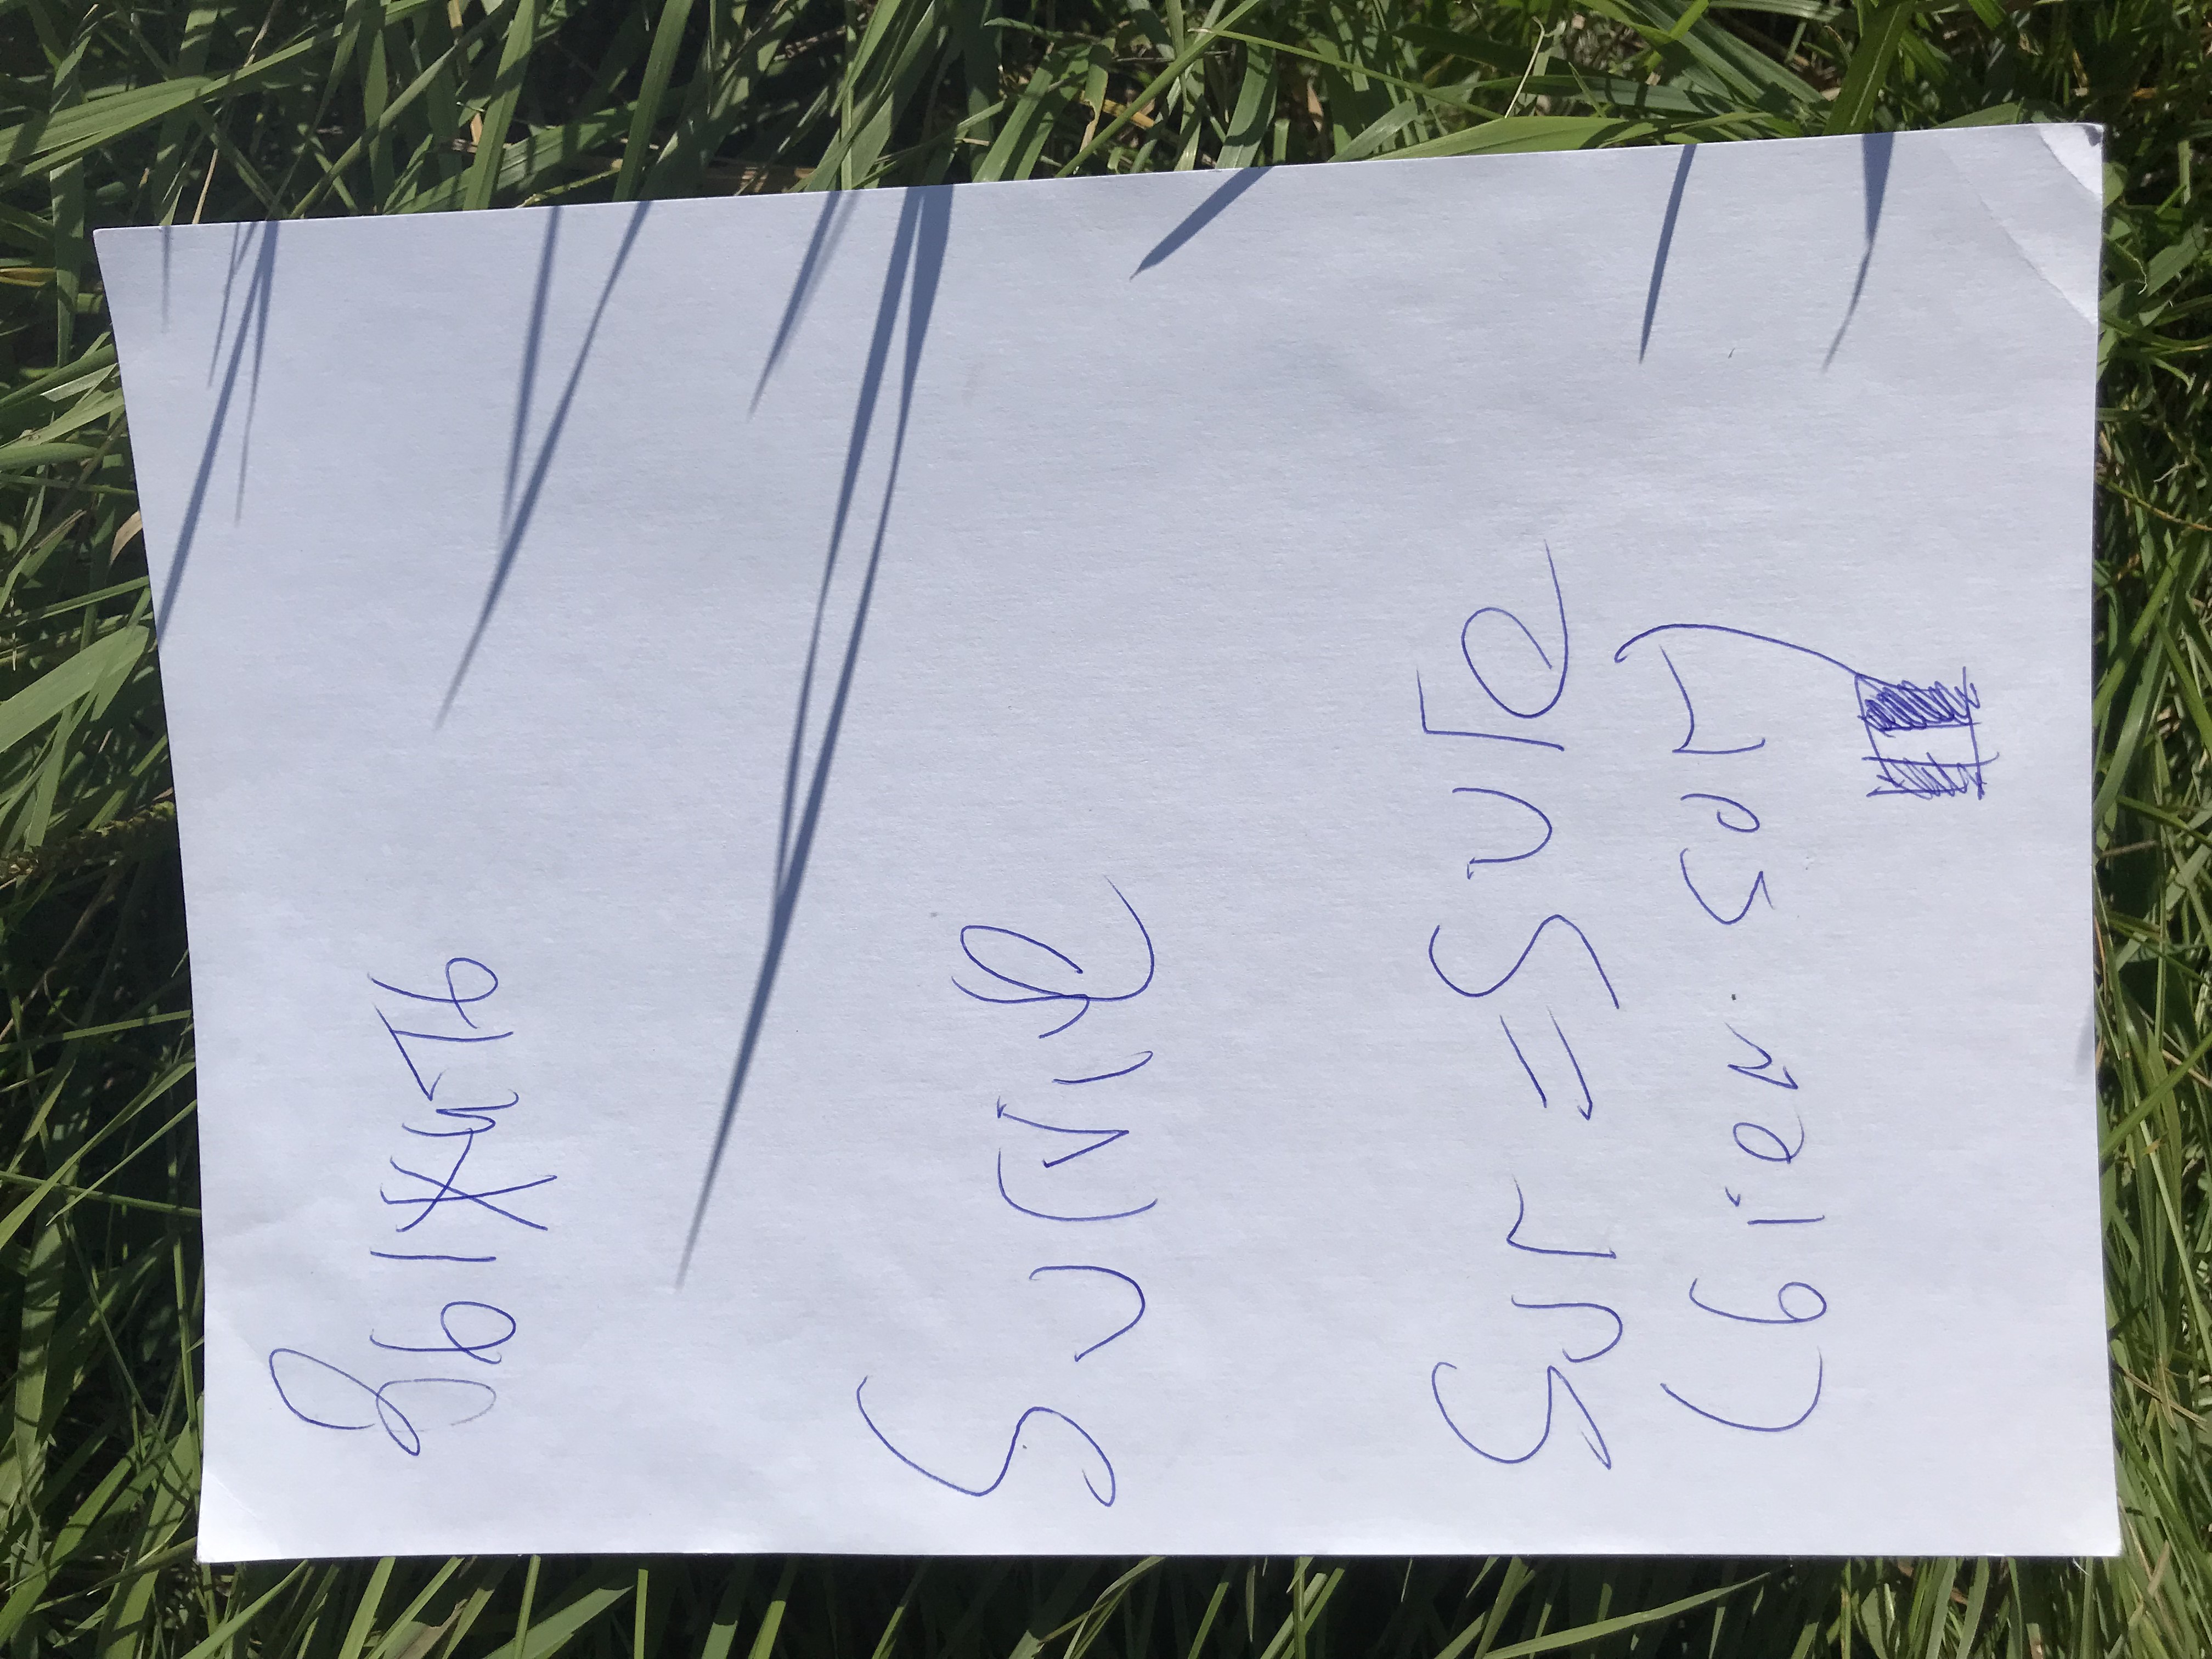 Выжить
Survive
Sur = Sure
(bien sur)